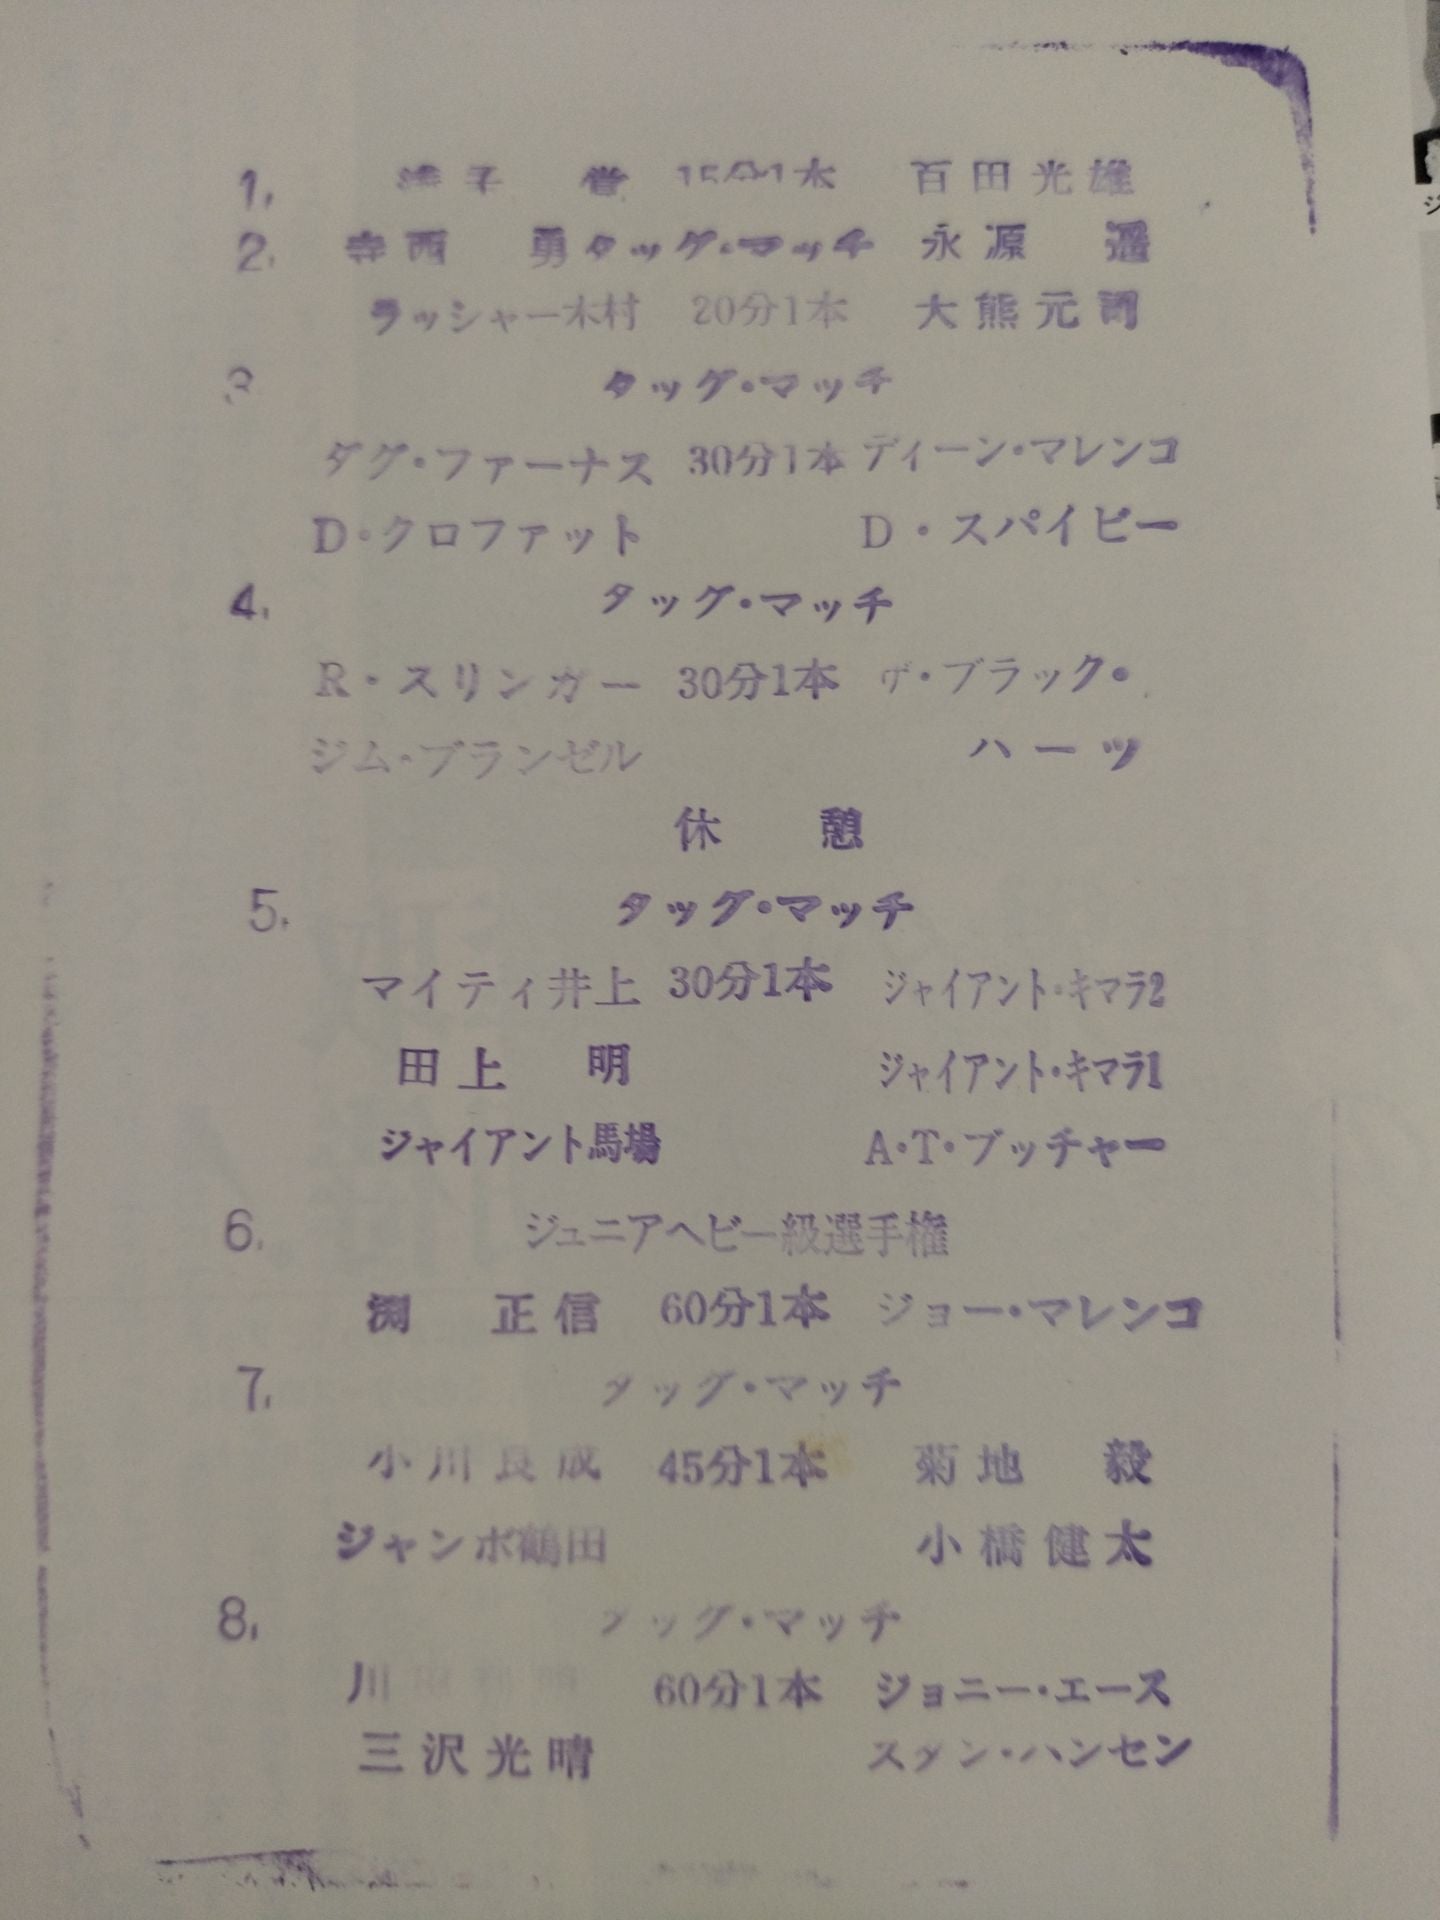 1. 15分1本 百田光雄
2. 寺西 勇 タッグ・マッチ 永源 遥
ラッシャー木村 20分1本 大熊元司
3 タッグ・マッチ
ダグ・ファーナス 30分1本 ディーン・マレンコ
D・クロファット D・スパイビー
4. タッグ・マッチ
R・スリンガー 30分1本 ザ・ブラック・
ジム・ブランゼル ハーツ
休 憩
5. タッグ・マッチ
マイティ井上 30分1本 ジャイアント・キマラ2
田上 明 ジャイアント・キマラ1
ジャイアント馬場 A・T・ブッチャー
6. ジュニアヘビー級選手権
渕 正信 60分1本 ジョー・マレンコ
7. タッグ・マッチ
小川良成 45分1本 菊地 毅
ジャンボ鶴田 小橋健太
8. タッグ・マッチ
川 60分1本 ジョニー・エース
三沢光晴 スタン・ハンセン